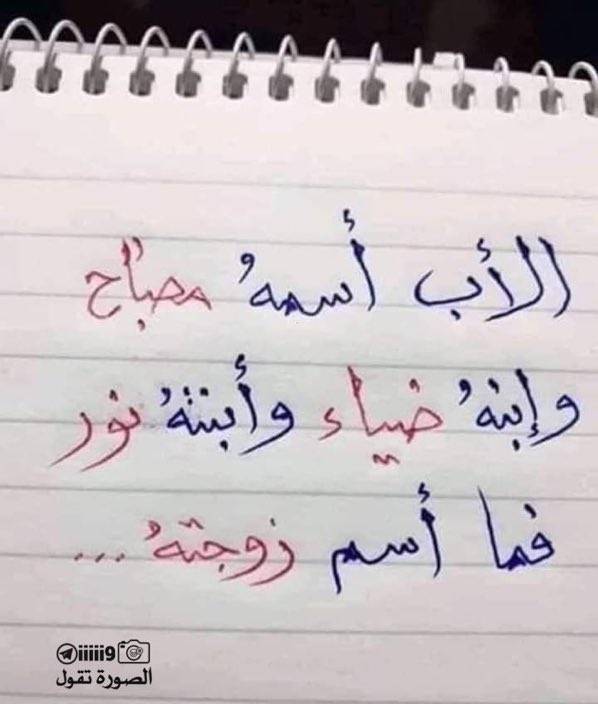 الأب أسمهُ مصباح
وإبنهُ ضياء وأبنتهُ نور
فما أسم زوجتهُ ...
iiiiii9
الصورة تقول